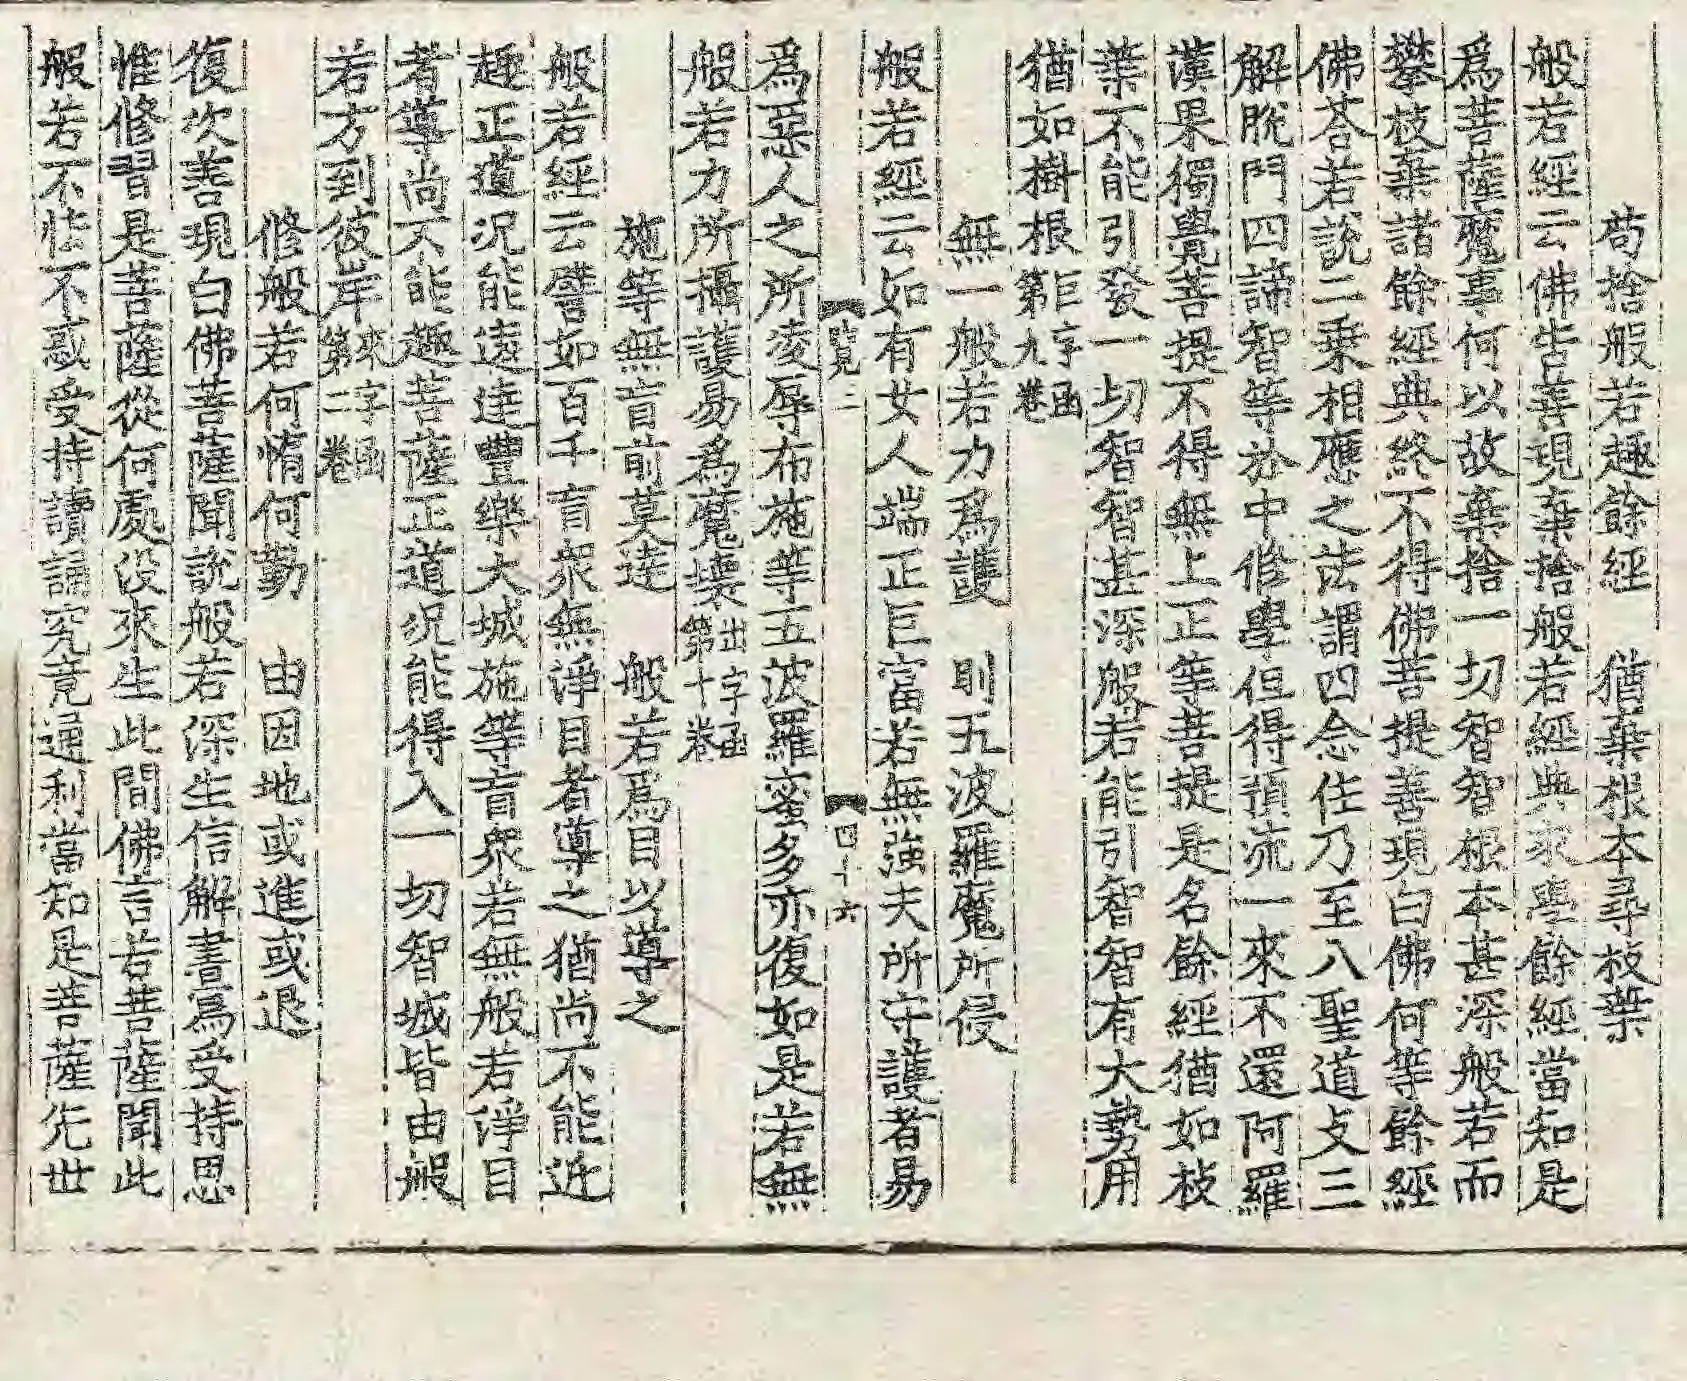 苟捨般若趣餘經　猶棄根本尋枝葉
般若經云佛告善現棄捨般若經典求學餘經當知是
爲菩薩魔事何以故棄捨一切智智根本甚深般若而
攀枝葉諸餘經典終不得佛菩提善現白佛何等餘經
佛荅若說二乗相應之法謂四念住乃至八聖道攴三
解脫門四諦智等於中修學但得預流一來不還阿羅
漢果獨覺菩提不得無上正等菩提是名餘經猶如枝
葉不能引發一切智智甚深般若能引智智有大勢用
猶如樹根巨字函第九卷
無一般若力爲護　則五波羅魔所侵
般若經云如有女人端正巨富若無強夫所守護者易
二　四十六
爲惡人之所凌辱布施等五波羅蜜多亦復如是若無
般若力所攝護易爲魔壞出字函第十卷
施等無盲前莫達　般若爲目以導之
般若經云譬如百千盲衆無淨目者導之猶尚不能近
趣正道況能遠達豐樂大城施等盲衆若無般若淨目
者導尚不能趣菩薩正道況能得入一切智城皆由般
若方到彼岸來字函第二卷
修般若何惰何勤　由因地或進或退
復次善現白佛菩薩聞說般若深生信解書爲受持思
惟修習是菩薩從何處没來生此間佛言若菩薩聞此
般若不怯不惑受持讀誦究竟通利當知是菩薩先世